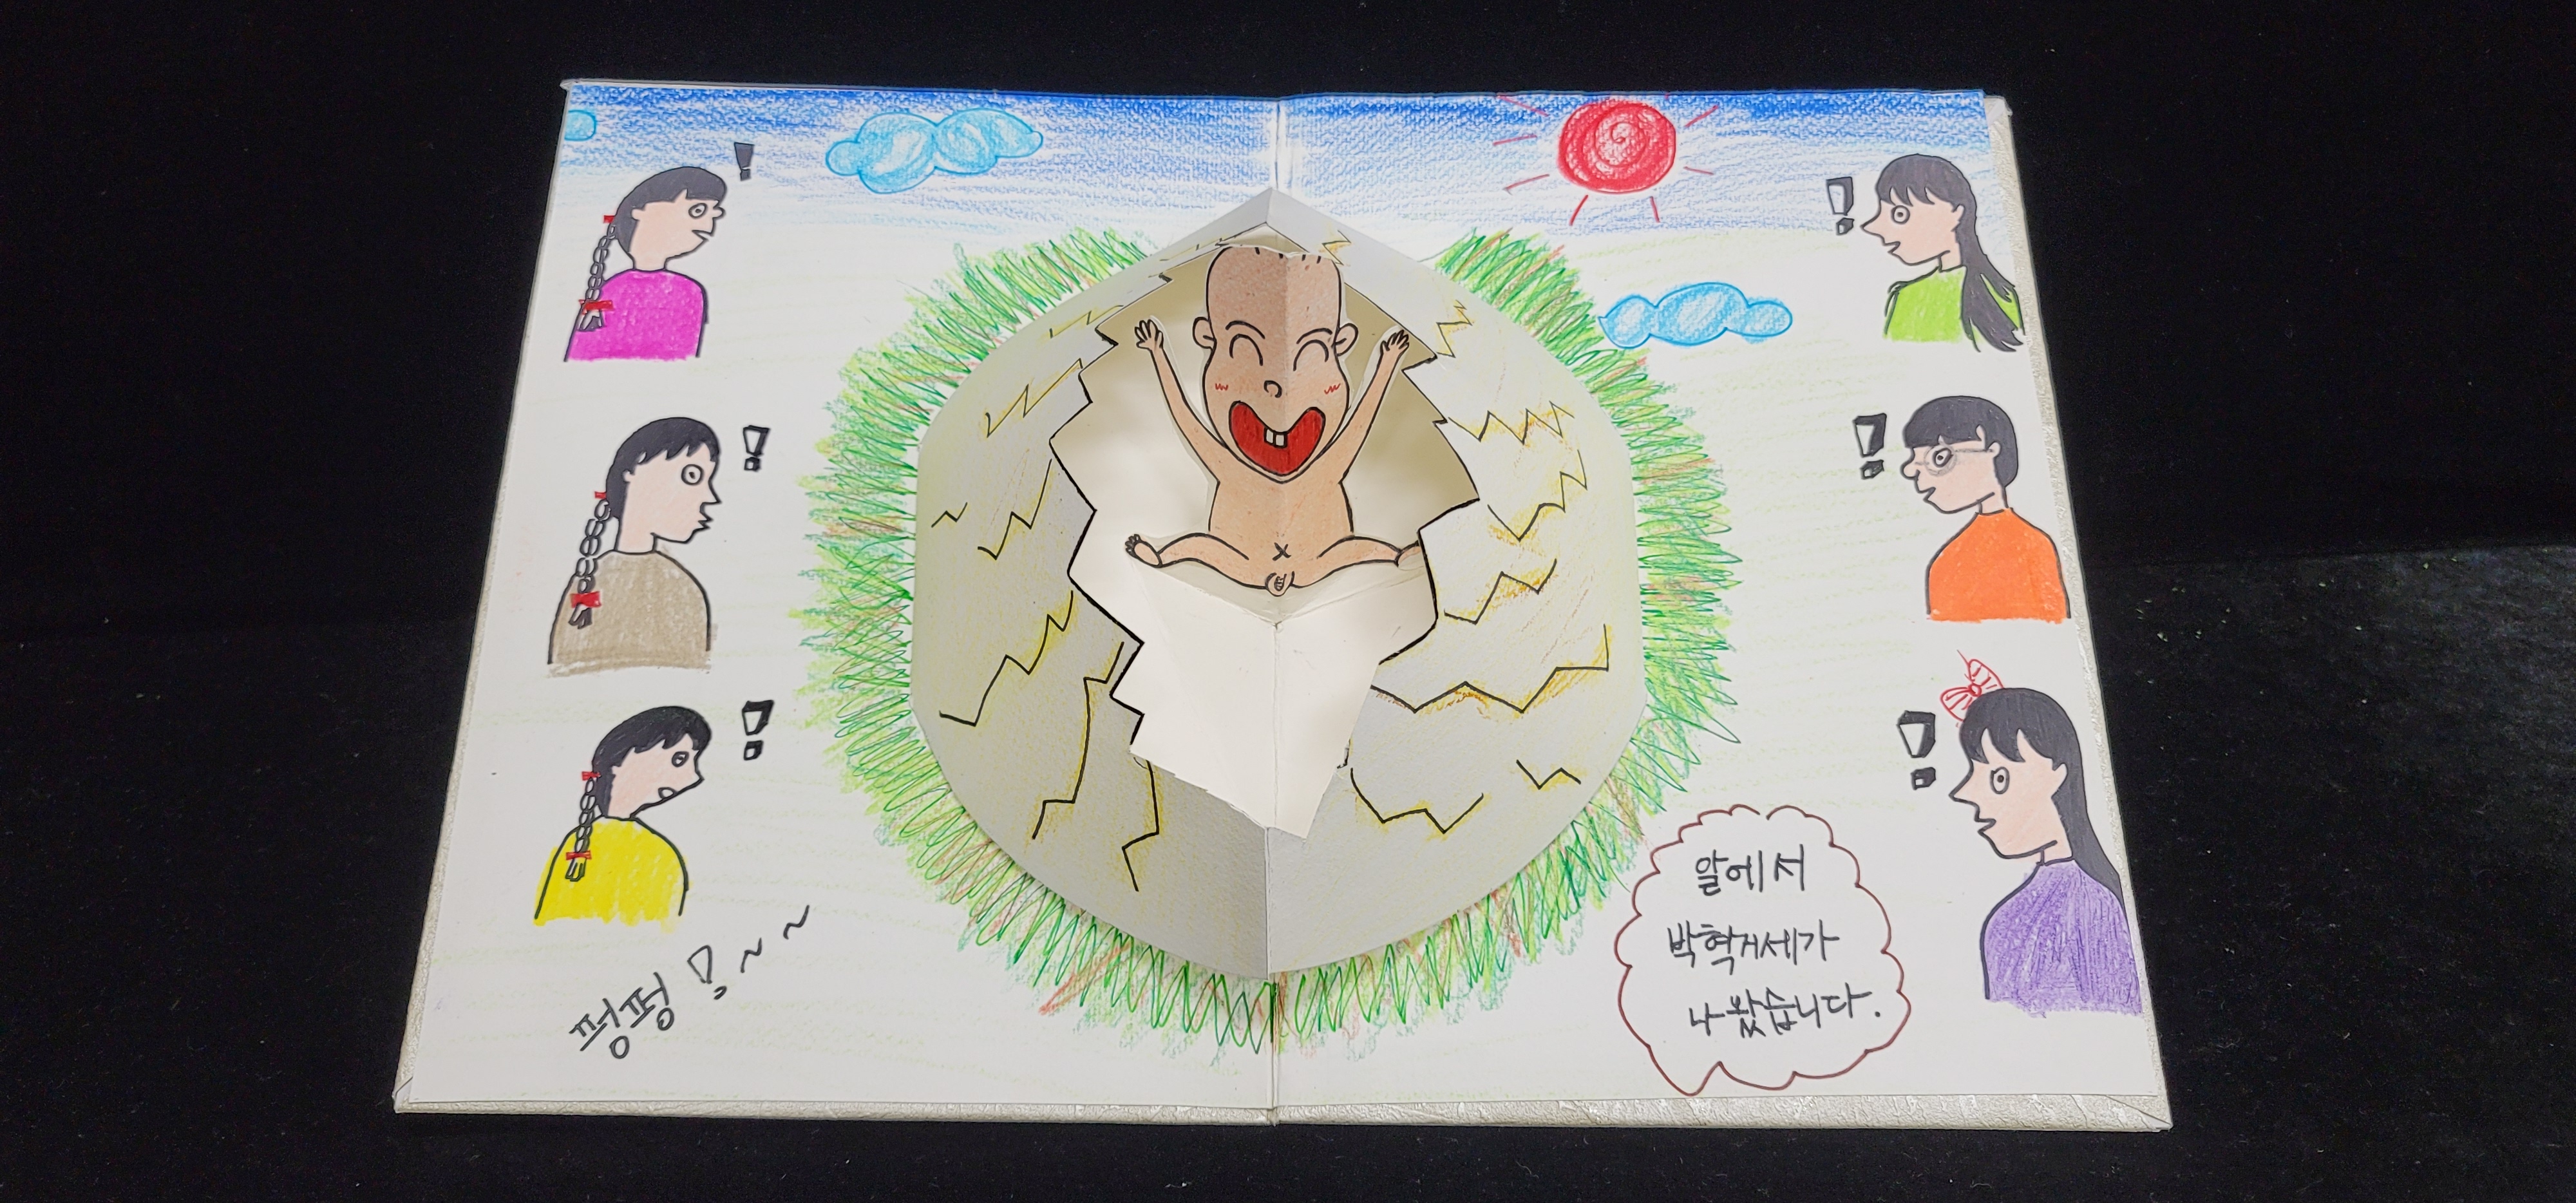 !
!
!
!
!
!
펑펑!~~
알에서
박혁거세가
나왔습니다.